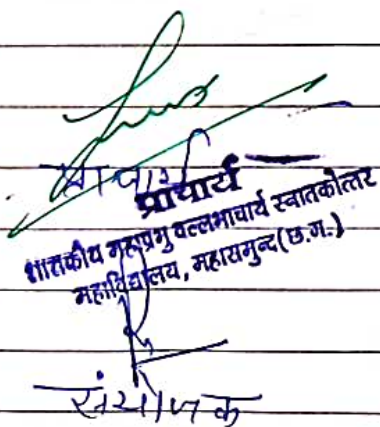 प्राचार्य
प्राचार्य
शासकीय महाप्रभु वल्लभाचार्य स्नातकोत्तर
महाविद्यालय, महासमुन्द (छ.ग.)
संयोजक